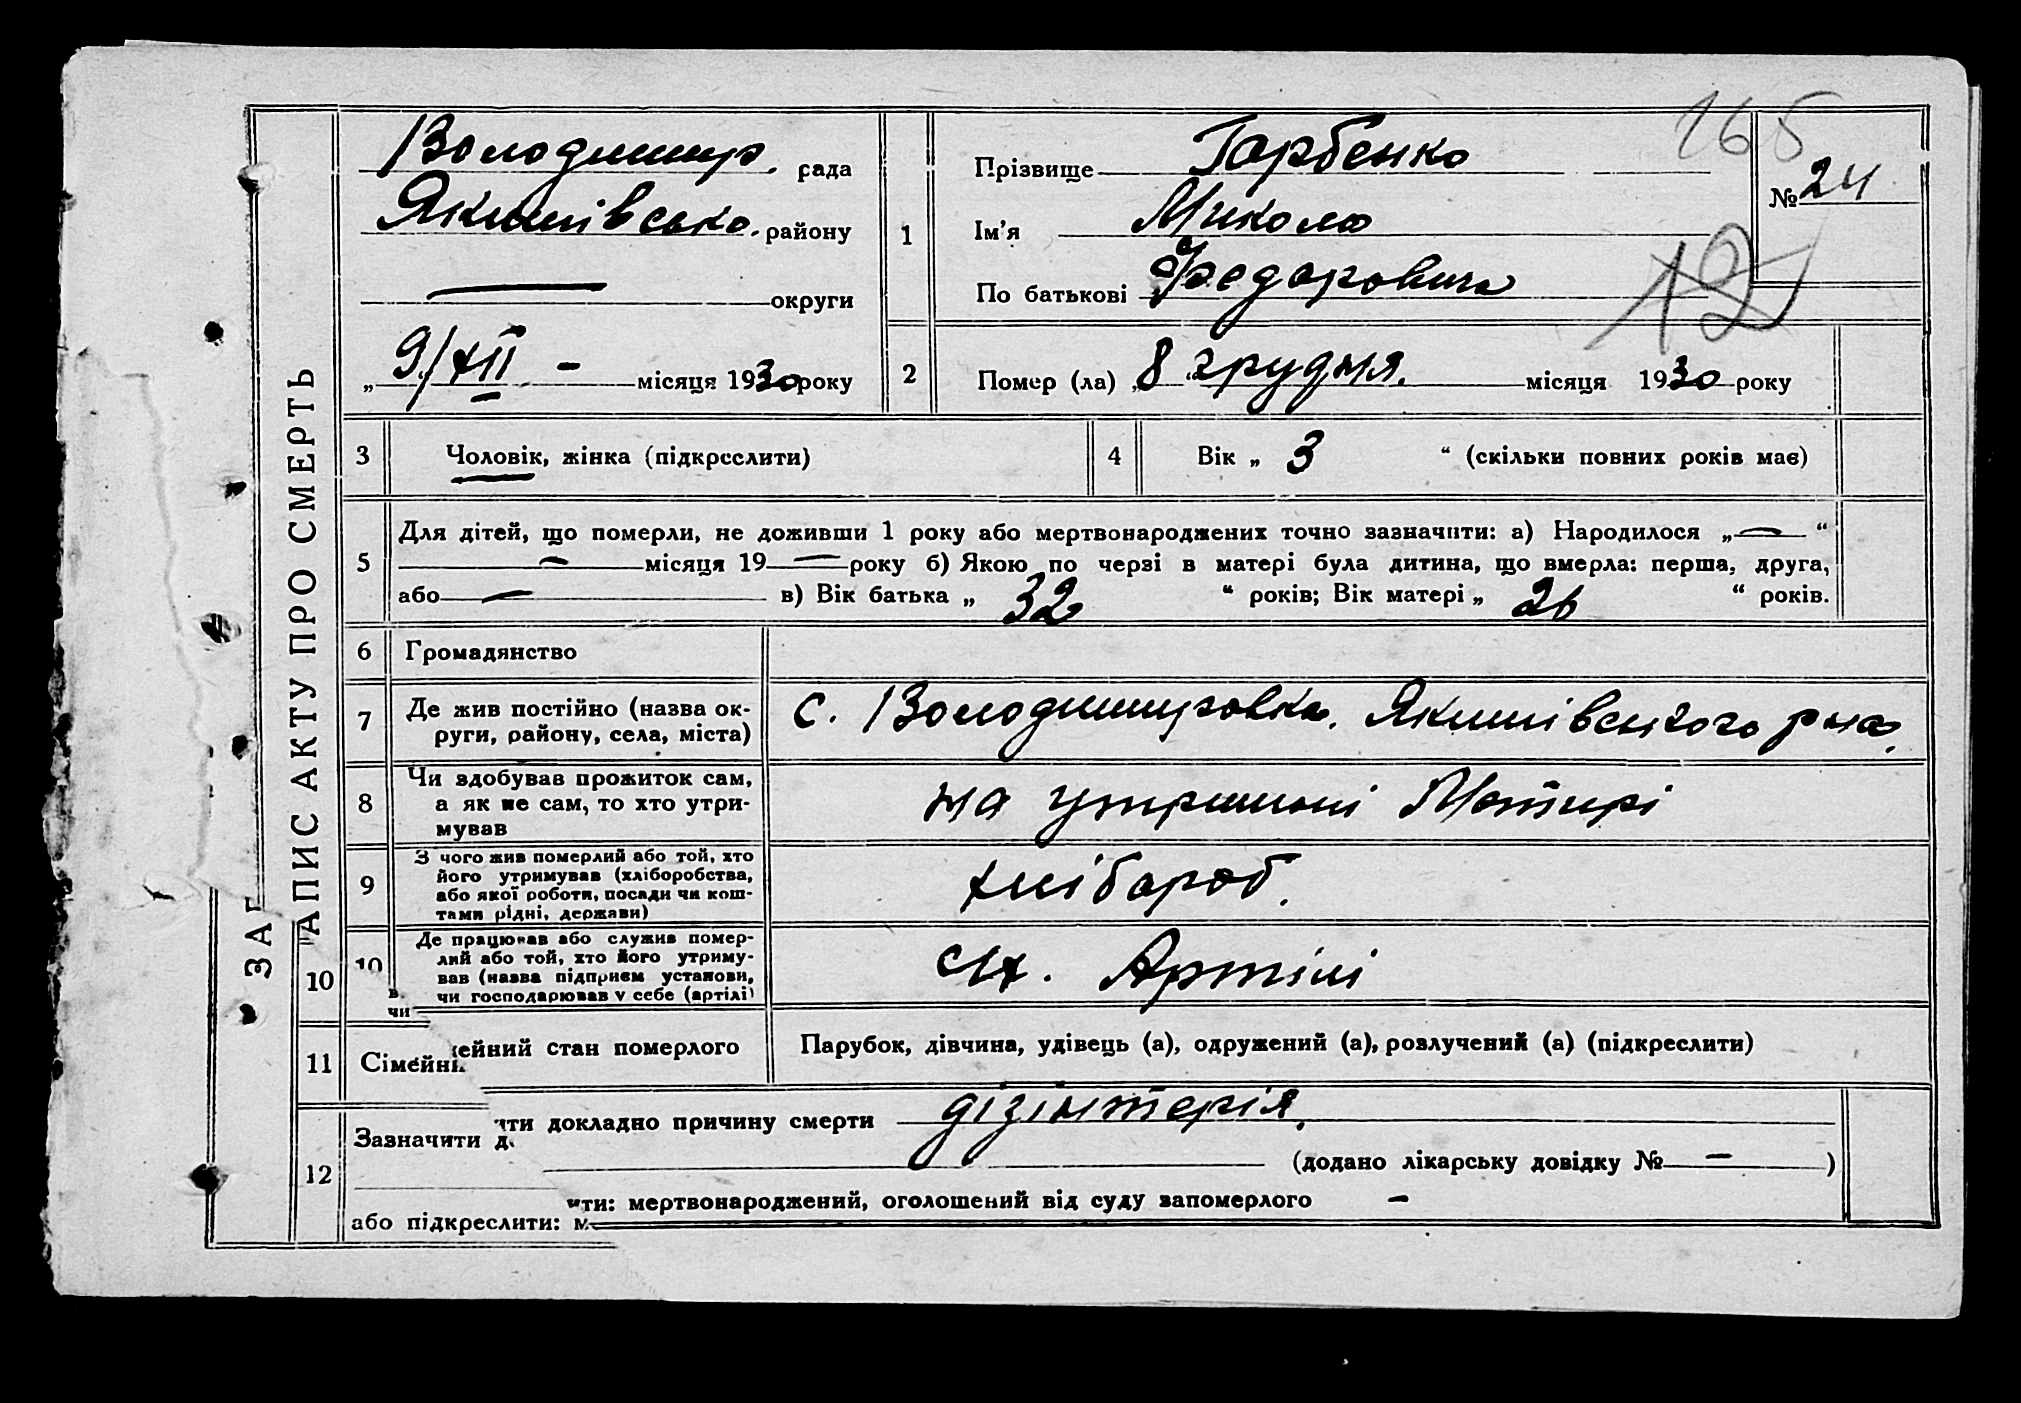 ЗАПИС АКТУ ПРО СМЕРТЬ
Володимир. рада
Якимівсько. району
округи
„9/XII - місяця 1930 року
1
Прізвище Гарбенко
Ім'я Микола
По батькові Федорович
165
№ 24
12
2
Помер (ла) „8 грудня. місяця 1930 року
3
Чоловік, жінка (підкреслити)
4
Вік „ 3 “ (скільки повних років має)
5
Для дітей, що померли, не доживши 1 року або мертвонароджених точно зазначити: а) Народилося „— “
— місяця 19 — року б) Якою по черзі в матері була дитина, що вмерла: перша, друга,
або — в) Вік батька „ 32 “ років; Вік матері „ 26 “ років.
6
Громадянство
7
Де жив постійно (назва ок-
руги, району, села, міста)
с. Володимировка. Якимівського р-на.
8
Чи здобував прожиток сам,
а як не сам, то хто утри-
мував
на утримані Матирі
9
З чого жив померлий або той, хто
його утримував (хліборобства,
або якої роботи, посади чи кош-
тами рідні, держави)
хлібароб.
10
10
Де працював або служив помер-
лий або той, хто його утриму-
вав (назва підприєм установи,
чи господарював у себе (артілі)
в.
чи
Артілі
11
Сімейн
ейний стан померлого
Парубок, дівчина, удівець (а), одружений (а), розлучений (а) (підкреслити)
12
Зазначити д
ити докладно причину смерти дізінтерія.
(додано лікарську довідку № — )
ити: мертвонароджений, оголошений від суду запомерлого -
або підкреслити: м